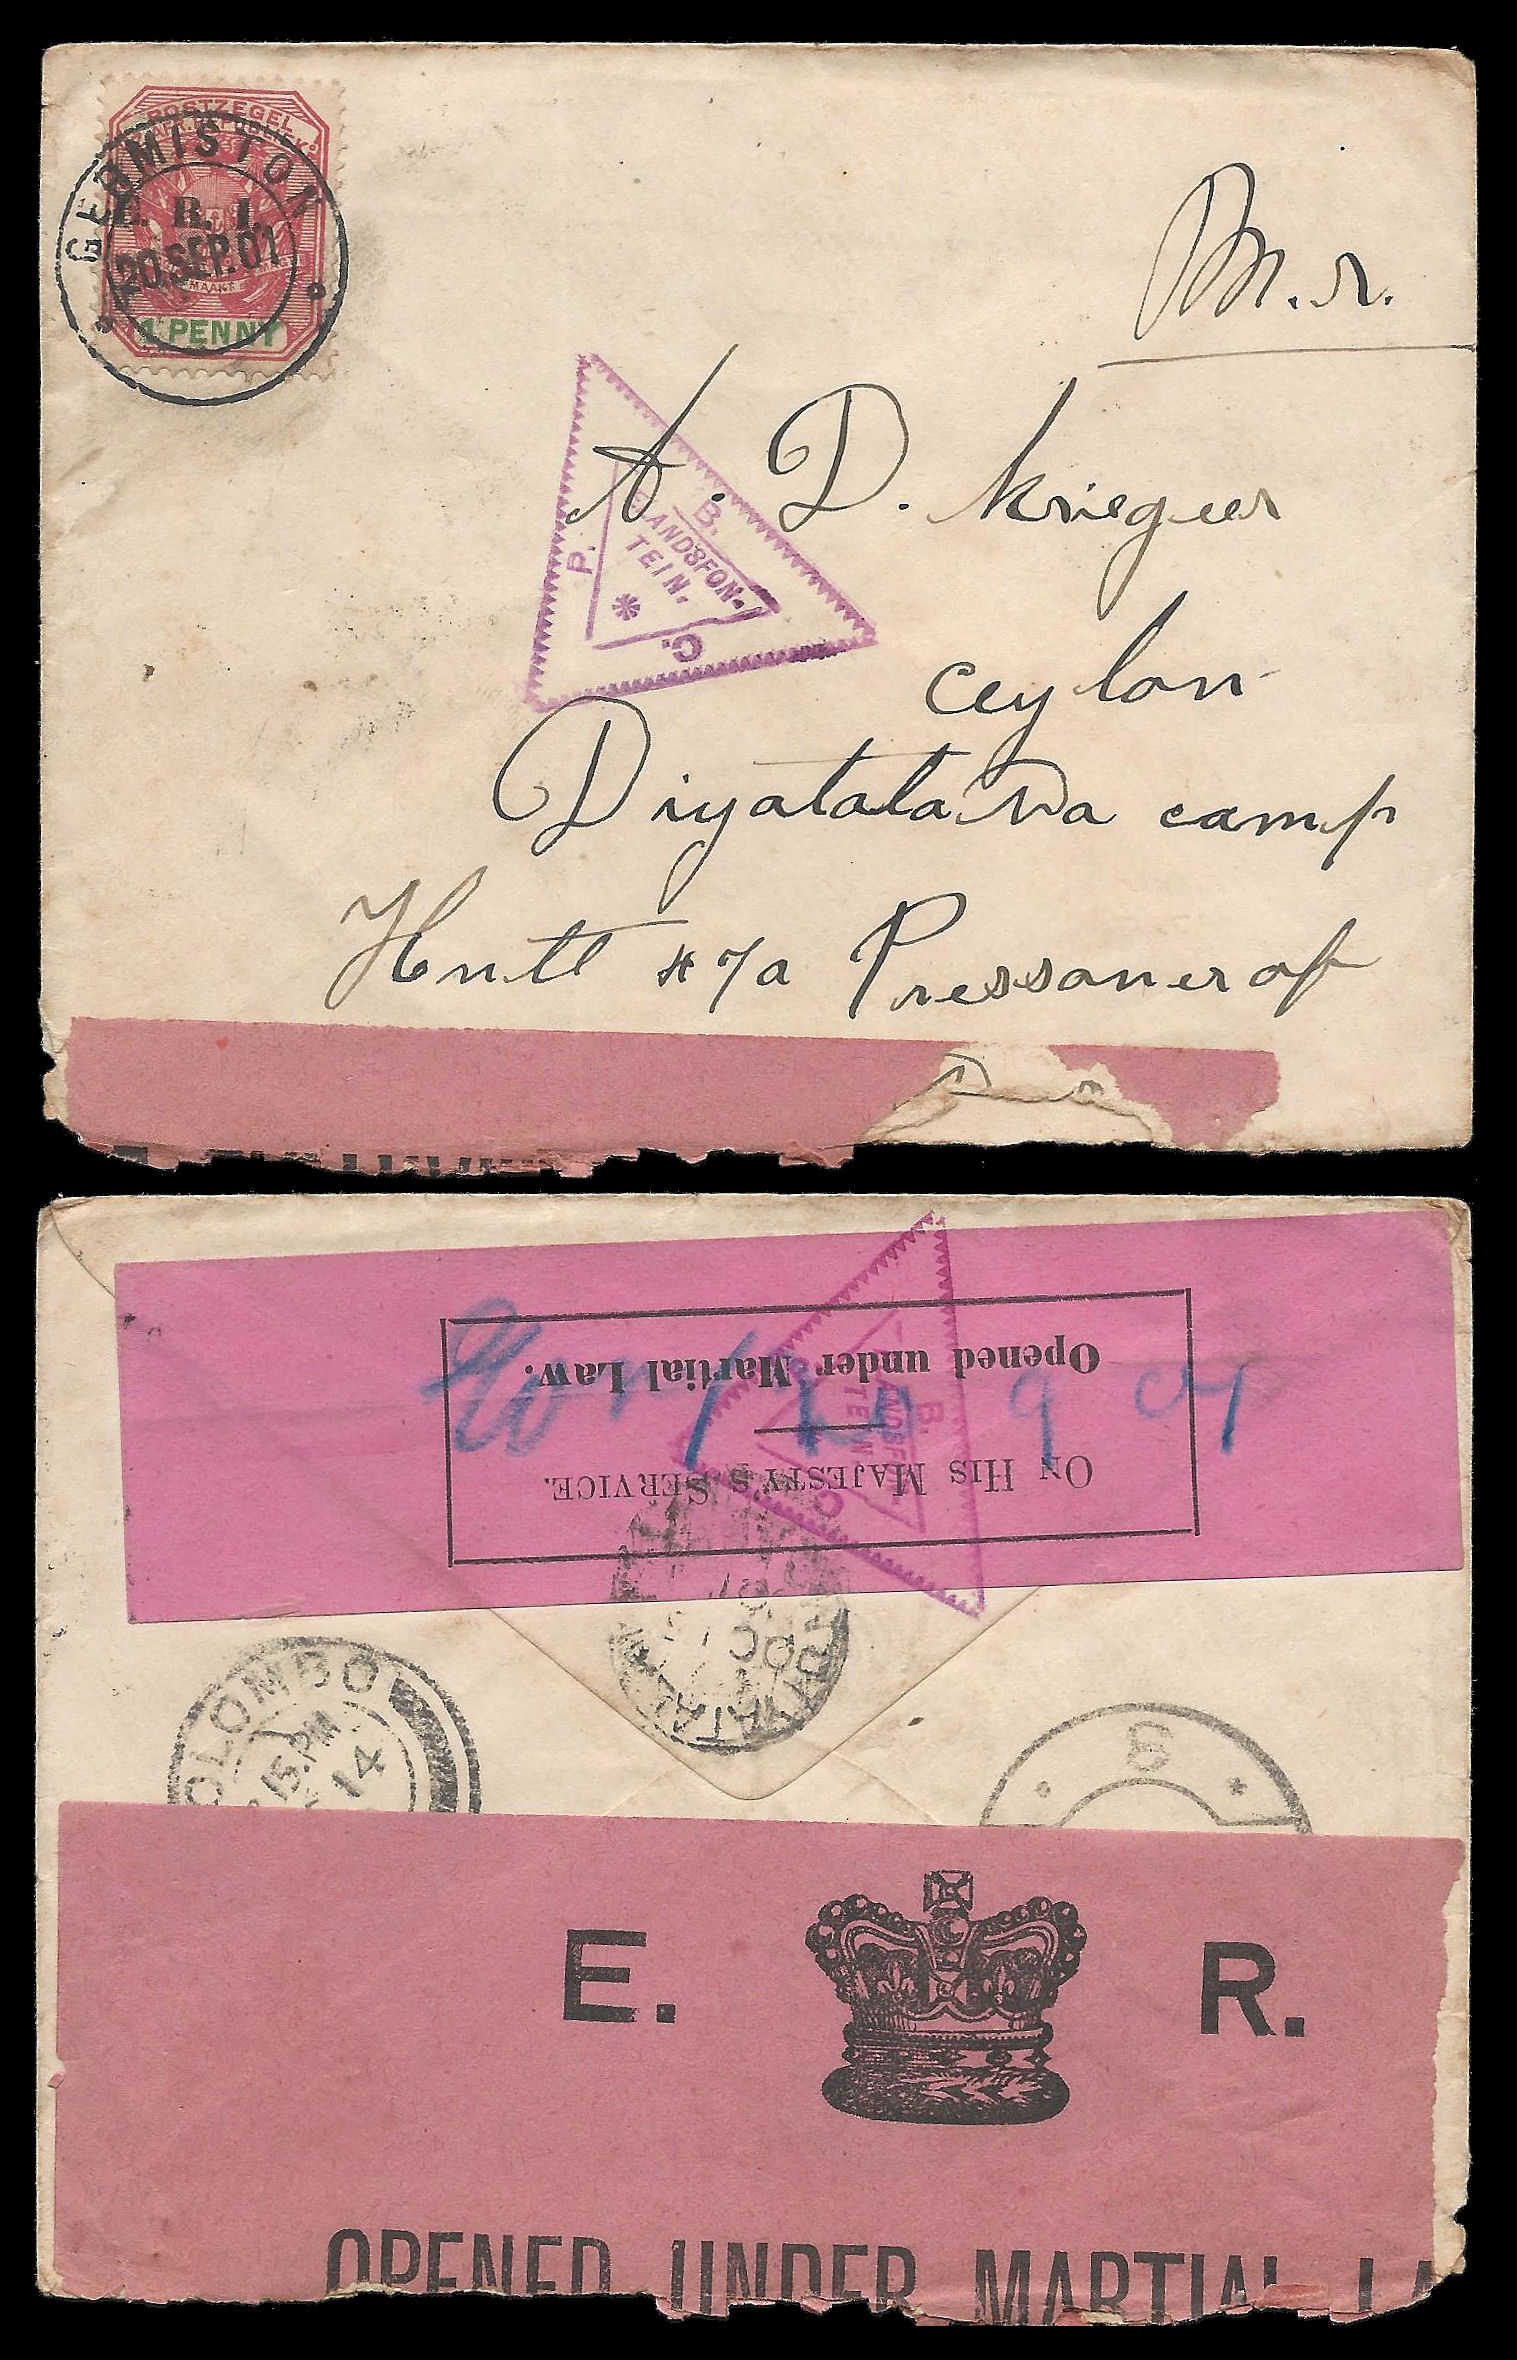 POSTZEGEL
GERMISTON
R. I.
20.SEP.01
1 PENNY
M.r.
A. D. Krieger
P. B. C.
LANDSFON-
TEIN.
Ceylon
Diyatalawa camp
Hutt # 7a Pressoner of
On His Majesty's Service.
Opened under Martial Law.
9 01
B. C.
COLOMBO
15 PM
14
OC
YATALA
S
E. R.
OPENED UNDER MARTIAL LA